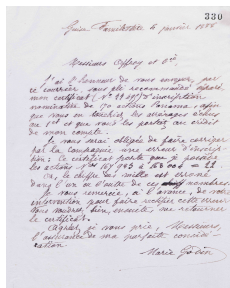 330
Guise Familistère 6 janvier 1888
Messieurs Offroy et Cie
J'ai l'honneur de vous envoyer, par
ce courrier sous pli recommandé
mon certificat d'inscription
nominative de 70 actions Panama afin
que vous en touchiez les arrérages échus
au 1er et que vous les portiez au crédit
de mon compte.
Je vous serai obligée de faire corriger
par la Compagnie une erreur d'inscrip
tion: le certificat porte que je possède
les actions
car, le chiffre des mille est erroné
dans l'un ou l'autre de ces nombres.
Je vous remercie, à l'avance, de votre
intervention pour faire rectifier cette erreur
Vous voudrez bien, ensuite, me retourner
le certificat.
Agréez, je vous prie, Messieurs,
l'assurance de ma parfaite considé
ration
Marie Godin